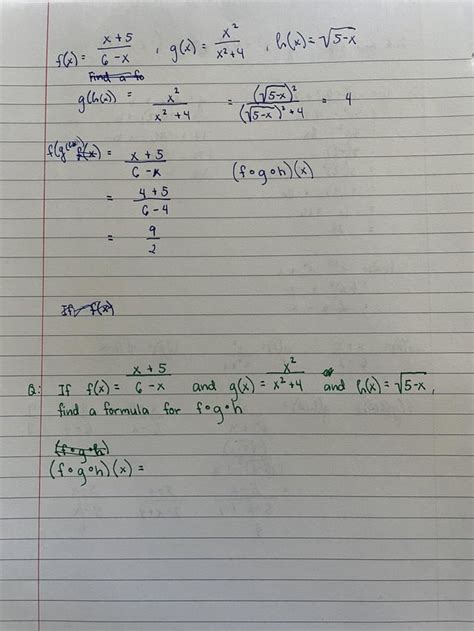 f(x) = x+5 / 6-x , g(x) = x² / x²+4 , h(x) = √5-x
Find a fo
g(h(x)) = x² / x²+4 = (√5-x)² / (√5-x)²+4 = 4
f(g(h(x)) f(x) = x+5 / 6-x (f∘g∘h)(x)
= 4+5 / 6-4
= 9 / 2
If f(x)
Q: If f(x) = x+5 / 6-x and g(x) = x² / x²+4 and h(x) = √5-x,
find a formula for f∘g∘h
(f∘g∘h)
(f∘g∘h)(x) =